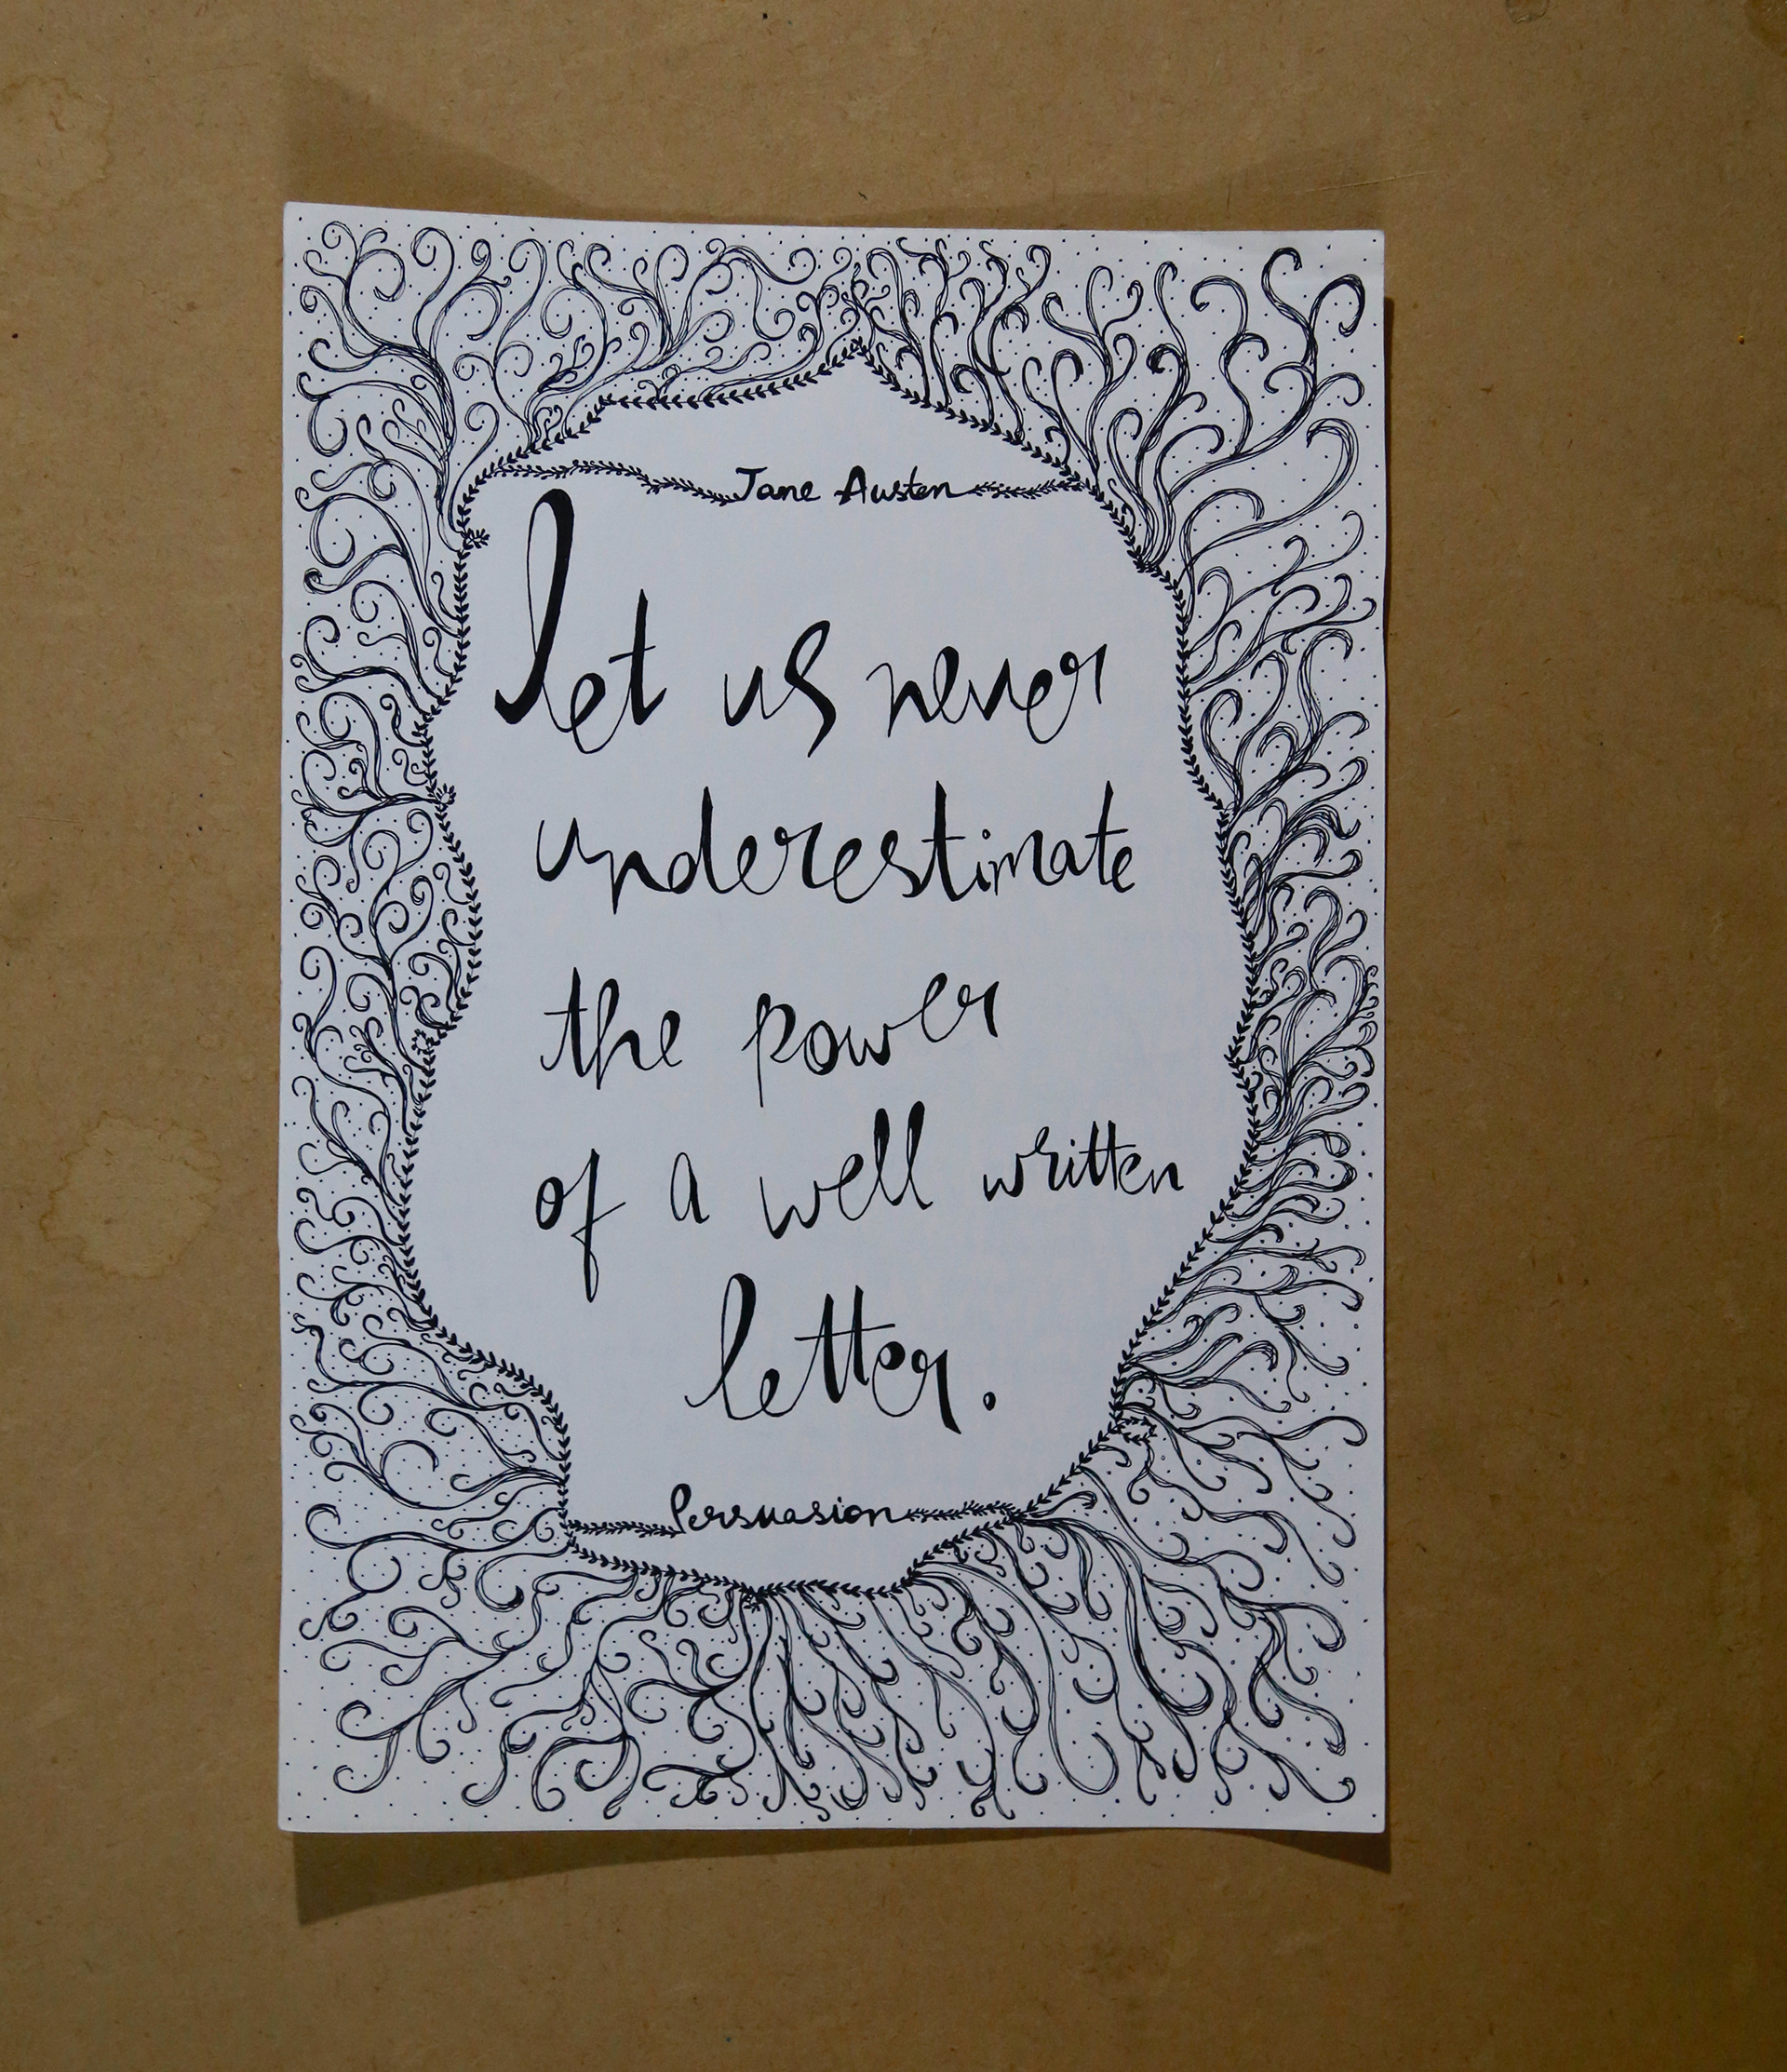 Jane Austen
let us never
underestimate
the power
of a well written
letter.
Persuasion